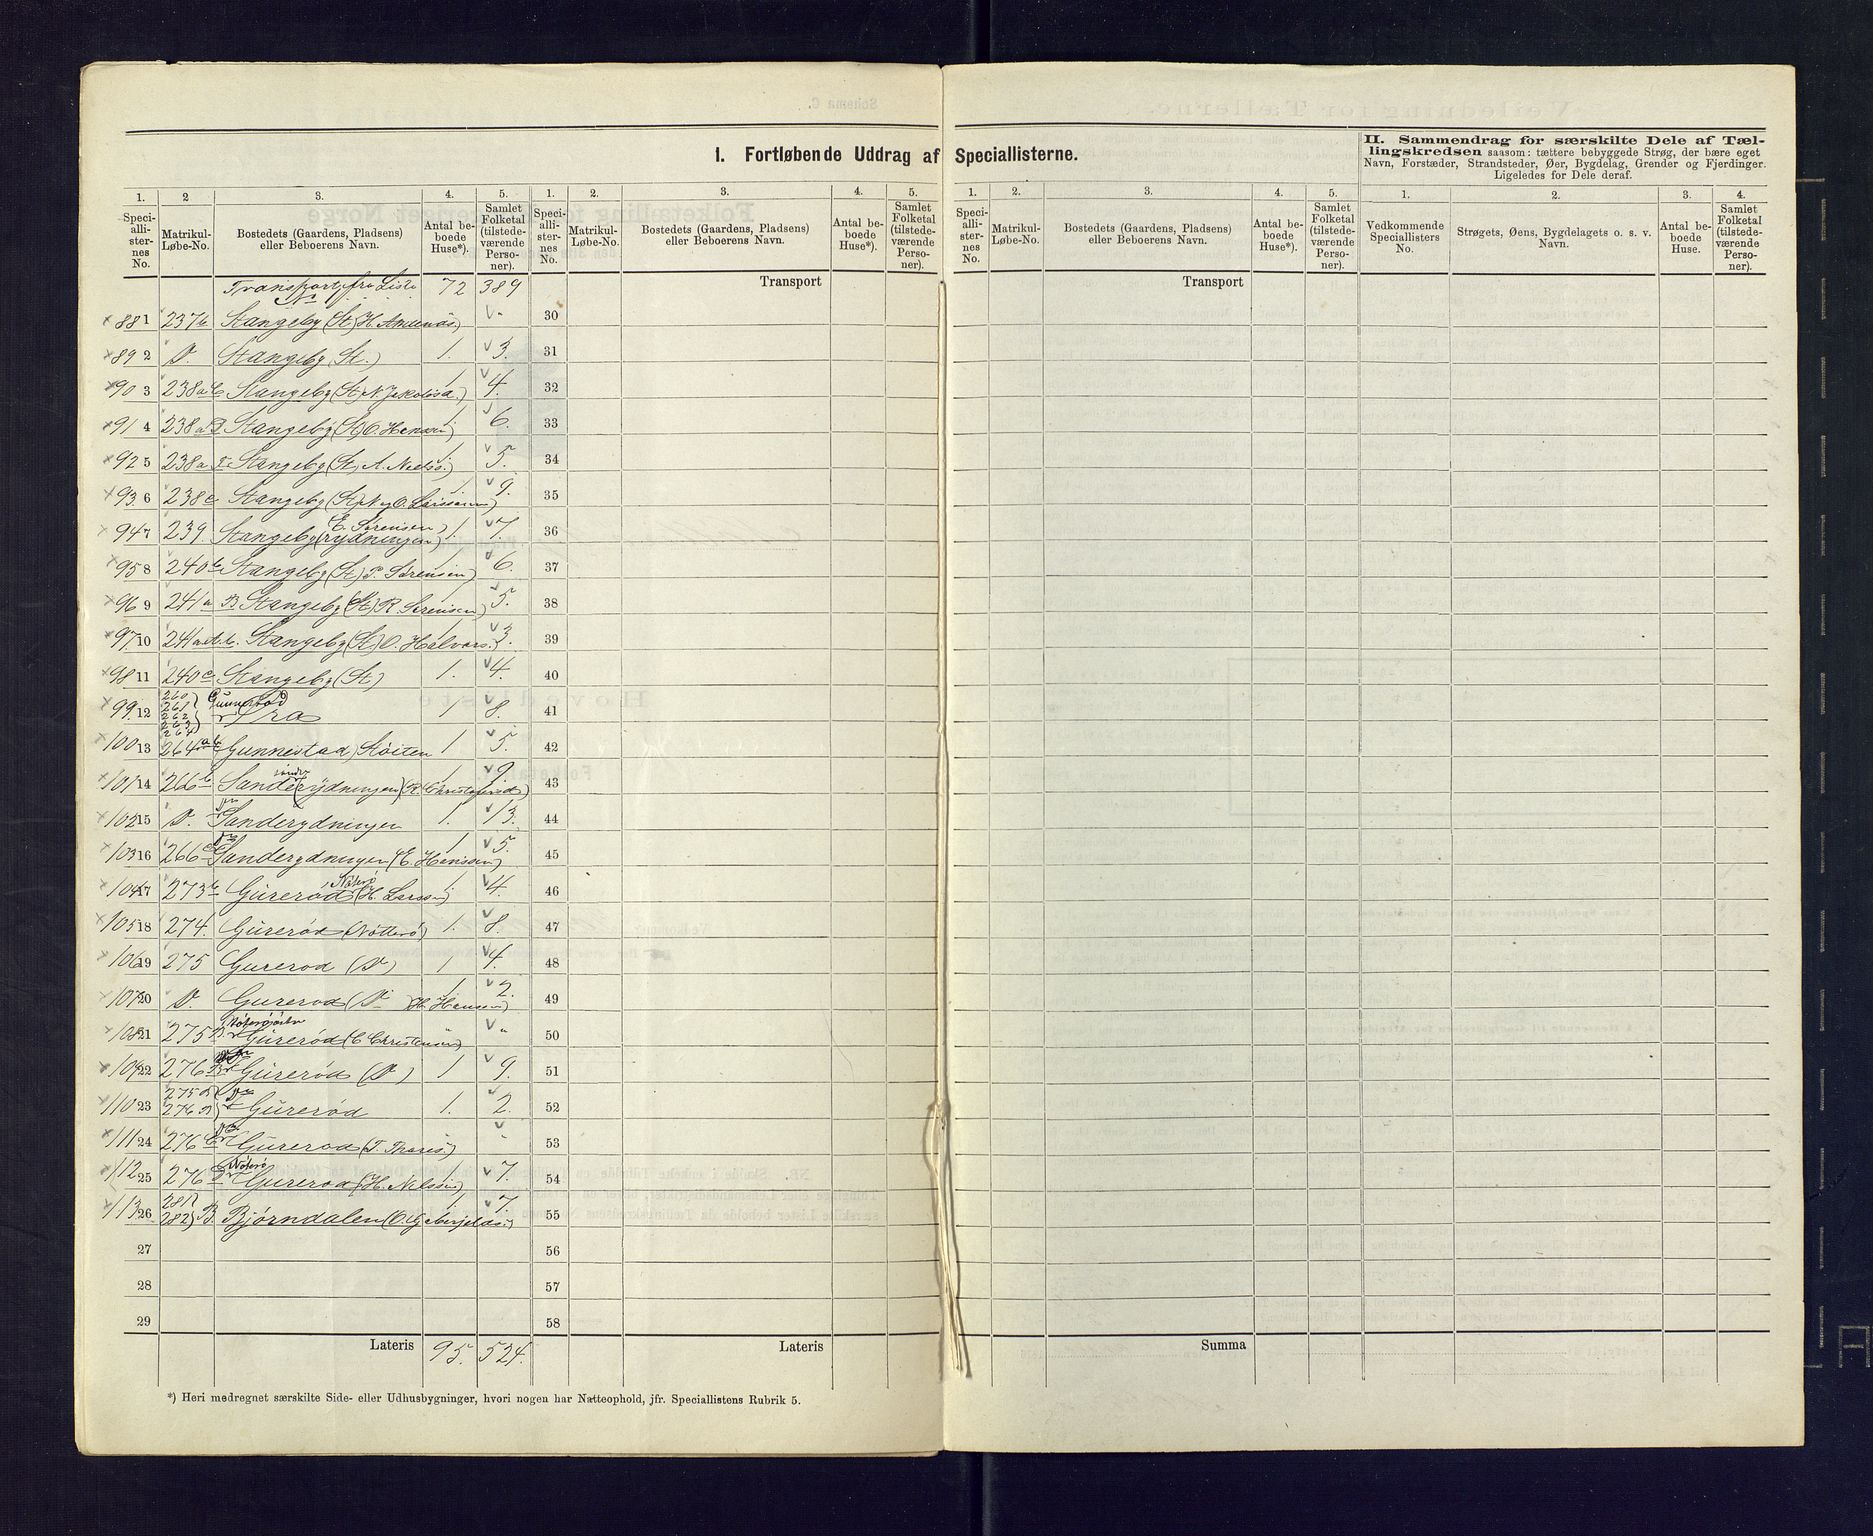 I. Fortløbende Uddrag af Speciallisterne.
II. Sammendrag for særskilte Dele af Tæl-
lingskredsen saasom: tættere bebyggede Strøg, der bære eget
Navn, Forstæder, Strandsteder, Øer, Bygdelag, Grender og Fjerdinger.
Ligeledes for Dele deraf.
1. 2 3. 4. 5. 1. 2. 3. 4. 5. 1. 2. 3. 4. 5. 1. 2. 3. 4.
Speci-alli-ster-nes No. Matrikul-Løbe-No. Bostedets (Gaardens, Pladsens) eller Beboerens Navn. Antal be-boede Huse*). Samlet Folketal (tilstede-værende Perso-ner).
Speci-alli-ster-nes No. Matrikul-Løbe-No. Bostedets (Gaardens, Pladsens) eller Beboerens Navn. Antal be-boede Huse*). Samlet Folketal (tilstede-værende Perso-ner).
Speci-alli-ster-nes No. Matrikul-Løbe-No. Bostedets (Gaardens, Pladsens) eller Beboerens Navn. Antal be-boede Huse*). Samlet Folketal (tilstede-værende Perso-ner).
Vedkommende Speciallisters No. Strøgets, Øens, Bygdelagets o. s. v. Navn. Antal be-boede Huse. Samlet Folketal (tilstede-værende Perso-ner).
Transport fra Liste No 72 389 Transport Transport
88 1 237b Stangeby (St) H. Andenæs) " 30
89 2 D. Stangeby St.) 1. 3. 31
90 3 238a C Stangeby (St) N. Jakobsd.) 1. 4. 32
91 4 238a D Stangeby (St) O. Hansen) 1. 6. 33
92 5 238a E Stangeby (St) A. Niels.) 1. 5. 34
93 6 238c Stangeby (St) 1. 9. 35
94 7 239. Stangeby (rydningen) E. Sørensen) 1. 7. 36
95 8 240b Stangeby (St) P. Sørensen) 1 6. 37
96 9 241a B Stangeby (St) R. Sørensen) 1 5. 38
97 10 241a Stangeby (St) O. Halvors.) 1 3. 39
98 11 240c Stangeby (St) 1. 4. 40
99 12 260 261 262 263 264 Gunnerød Fra 1 8. 41
100 13 264a b (Gunnestad) Støiten 1 5. 42
101 14 266b Sande søndre (rydningen) 1 9. 43
102 15 D. Sanderydningen 1. 13. 44
103 16 266c Sanderydningen (E. Hansen) 1 5. 45
104 17 273b Gurerød Nøterø (H. Larssen) 1. 4. 46
105 18 274. Gurerød (Nøtterø) 1. 8. 47
106 19 275 Gurerod (D) 1 4. 48
107 20 D. Gurerod (D) H. Hansen) 1 2. 49
108 21 275 Gurerød (C Christensen) " " 50
109 22 276 B Gurerød (D) 1 9. 51
110 23 275 D 276 D Gurerød 1. 2. 52
111 24 276 C Gurerod (T. Thores.) " 53
112 25 276 D Nøterø Gurerod (H. Nilssen) 1. 7. 54
113 26 281 282 B. Bjørndalen 1. 7. 55
27 56
28 57
29 58
Lateris 95. 524. Lateris Summa
*) Heri medregnet særskilte Side- eller Udhusbygninger, hvori nogen har Natteophold, jfr. Speciallistens Rubrik 5.